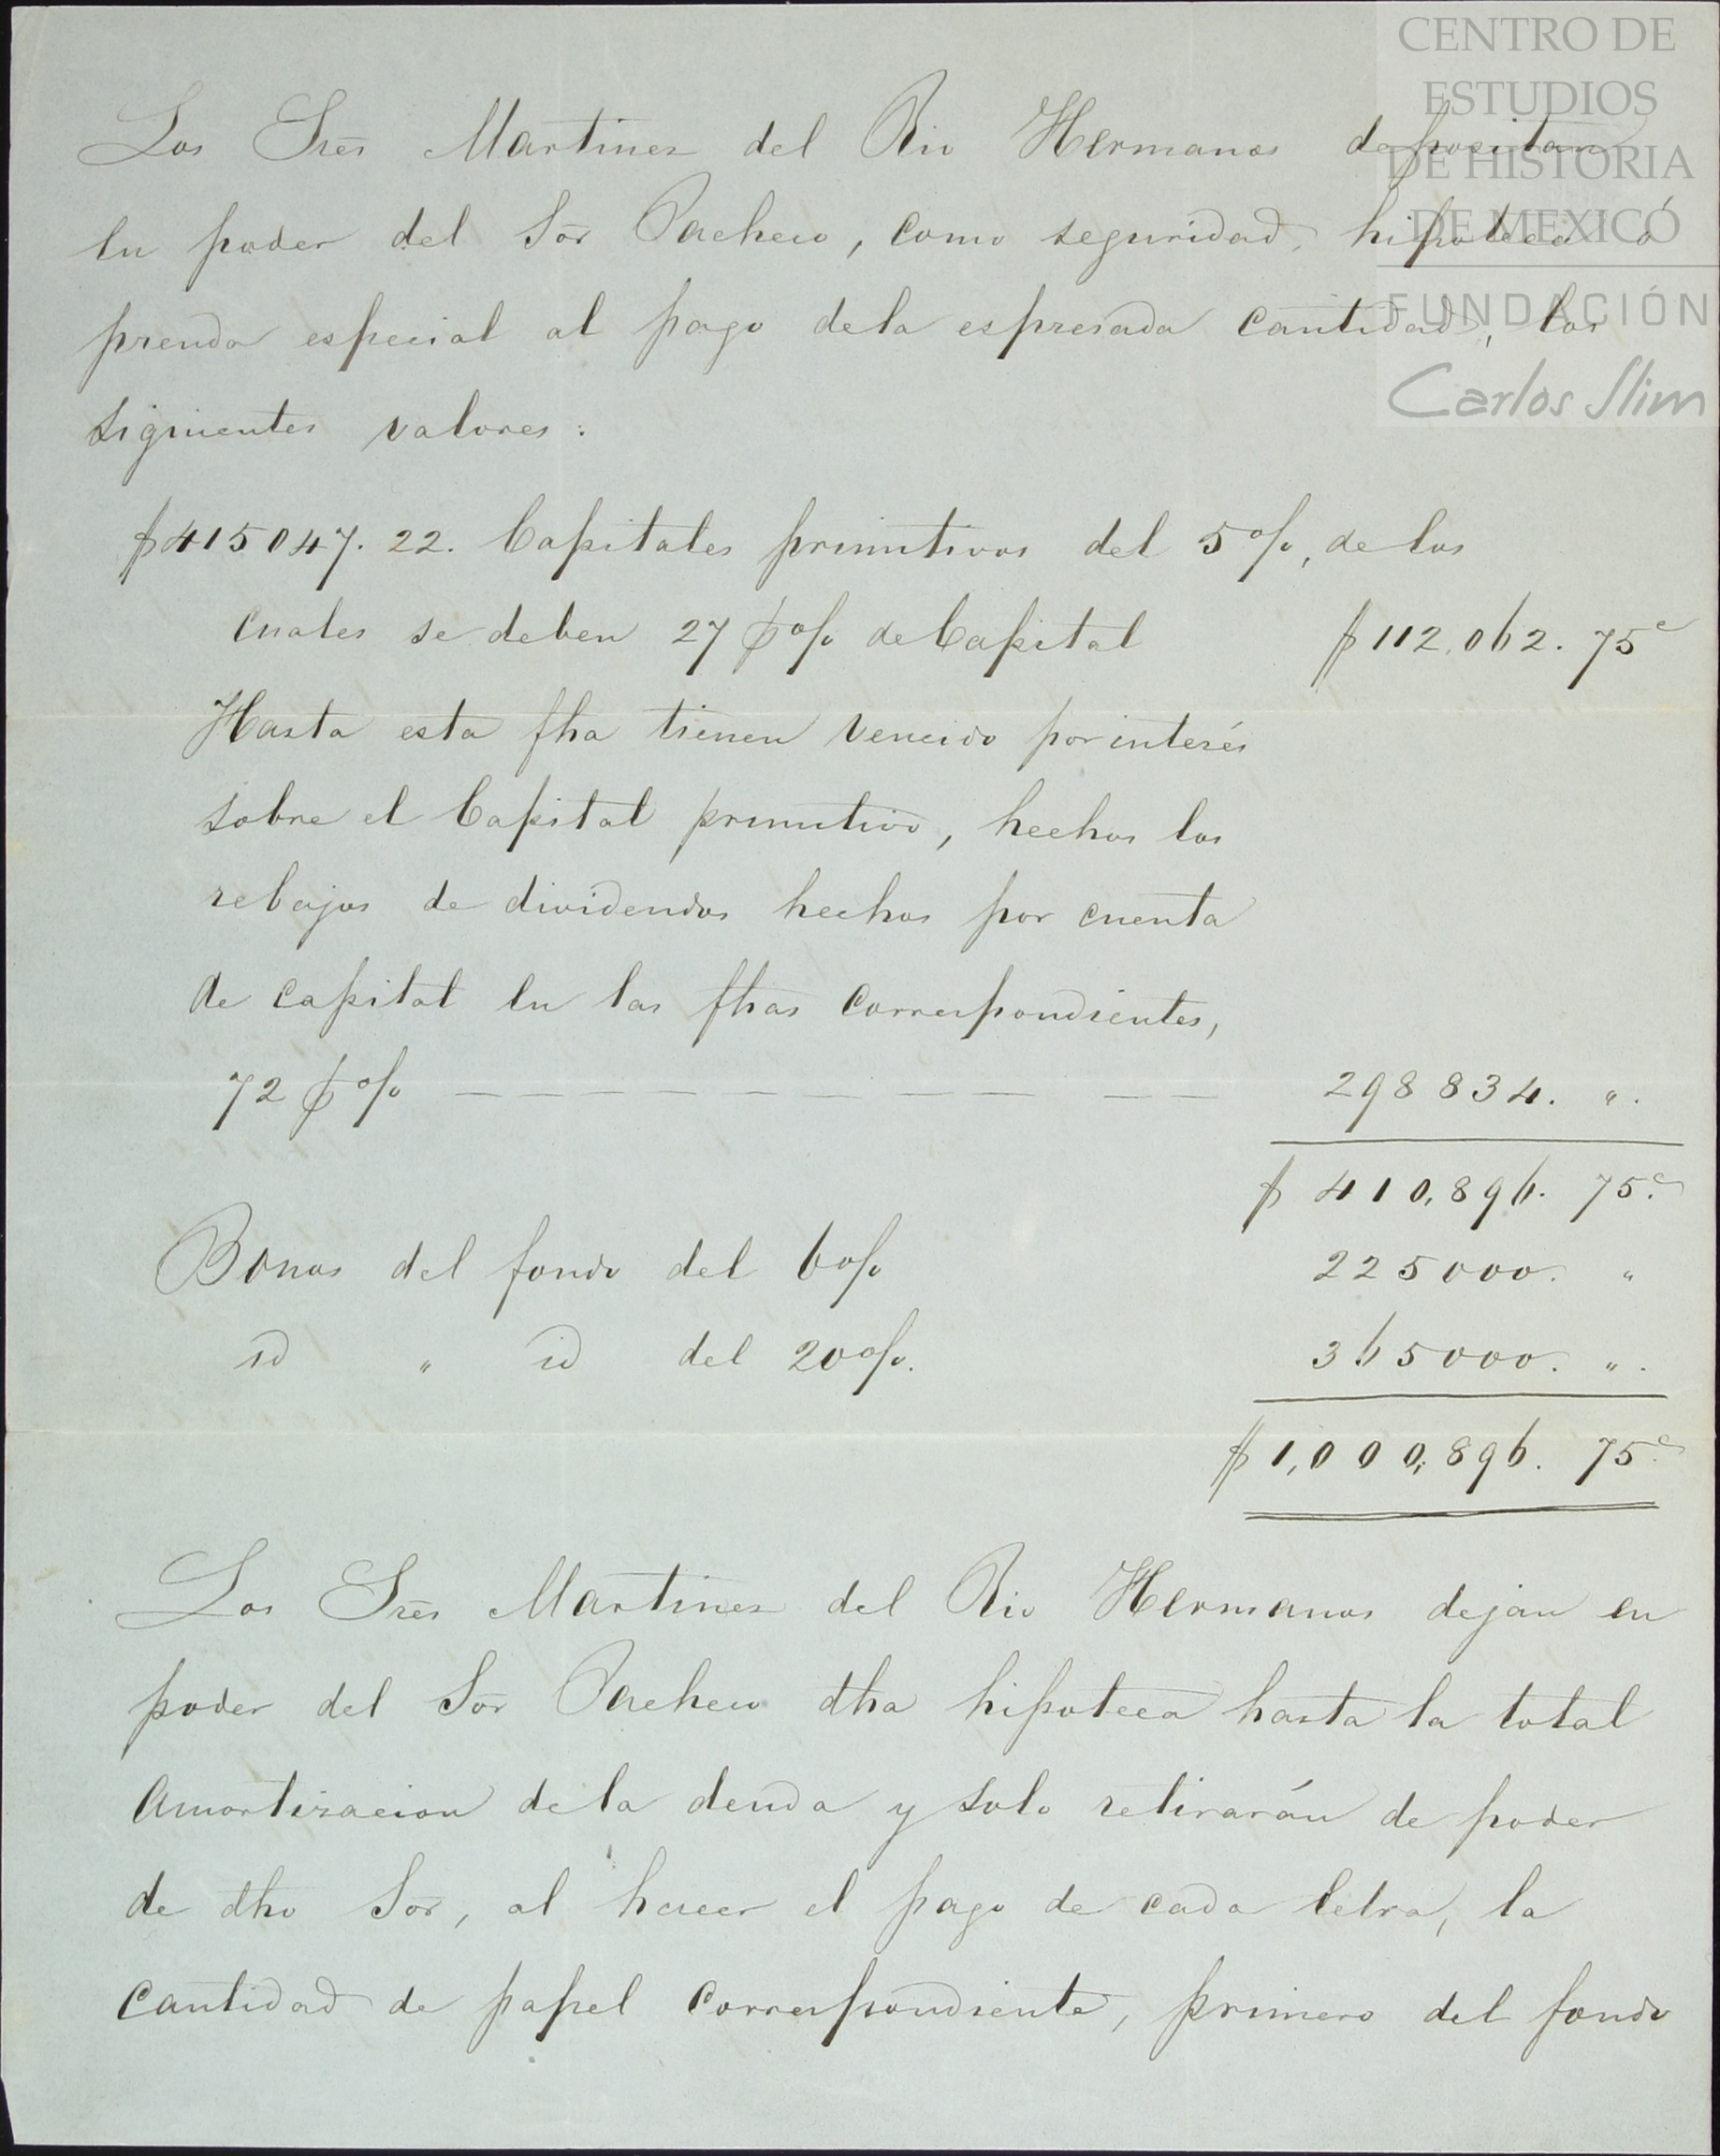 Los Sres Martinez del Rio Hermanos depositan
en poder del Sor Pacheco, como seguridad, hipoteca ó
prenda especial al pago dela espresada cantidad, los
siguientes valores:
$415047. 22. Capitales primitivos del 5%, de los
cuales se deben 27 p% de Capital $112,062. 75c
Hasta esta fha tienen vencido por interés
sobre el Capital primitivo, hechos los
rebajos de dividendos hechos por cuenta
de capital en las fhas correspondientes,
72 p% — — — — — — — — — — — 298834. ".
$ 410,896. 75c
Bonos del fondo del 6% 225000. "
id " id del 20%. 365000. ".
$1,000,896. 75c
Los Sres Martinez del Rio Hermanos dejan en
poder del Sor Pacheco dha hipoteca hasta la total
amortizacion dela deuda y solo retirarán de poder
de dho Sor, al hacer el pago de cada letra, la
cantidad de papel correspondiente, primero del fondo
CENTRO DE
ESTUDIOS
DE HISTORIA
DE MEXICÓ
FUNDACIÓN
Carlos Slim